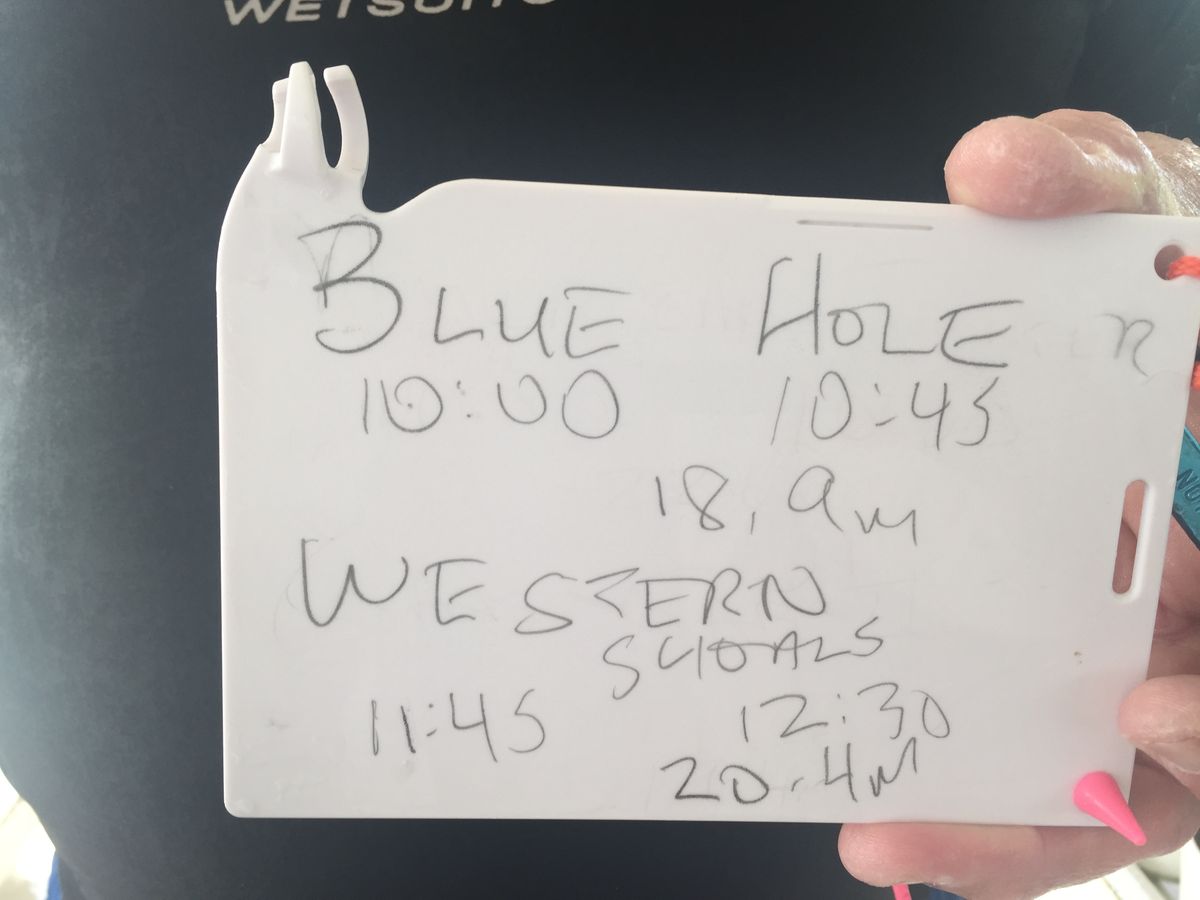 WETSUITS
BLUE HOLE
10:00 10:45
18,9m
WESTERN
SHOALS
11:45 12:30
20.4M